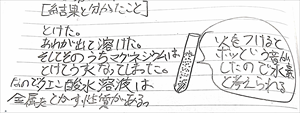 [結果と分かったこと]
とけた。
あわが出て溶けた。
そしてそのうちマグネシウムは
とけてうすくなってしまった。
なのでクエン酸水溶液は
金属をとかす性質がある。
火をつけると
ポッという音が
したので水素
と考えられる